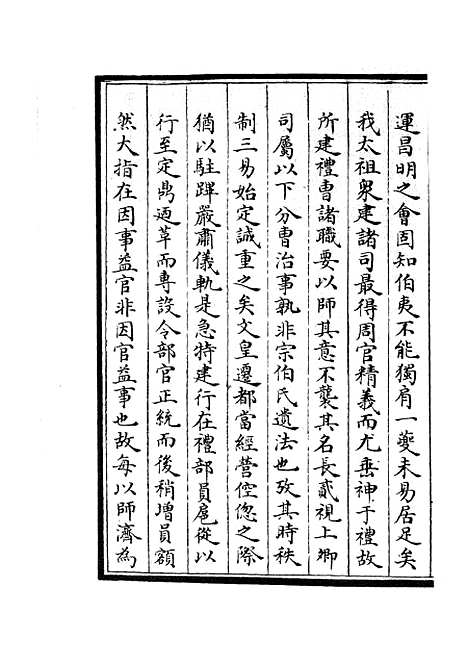 運昌明之會固知伯夷不能獨肩一夔未易居足矣
我太祖衆建諸司最得周官精義而尤垂神于禮故
所建禮曹諸職要以師其意不襲其名長貳視上卿
司屬以下分曹治事孰非宗伯氏遺法也攷其時秩
制三易始定誠重之矣文皇遷都當經營倥偬之際
猶以駐蹕嚴肅儀軌是急特建行在禮部員扈從以
行至定鼎迺革而專設令部官正統而後稍增員額
然大指在因事益官非因官益事也故每以師濟為